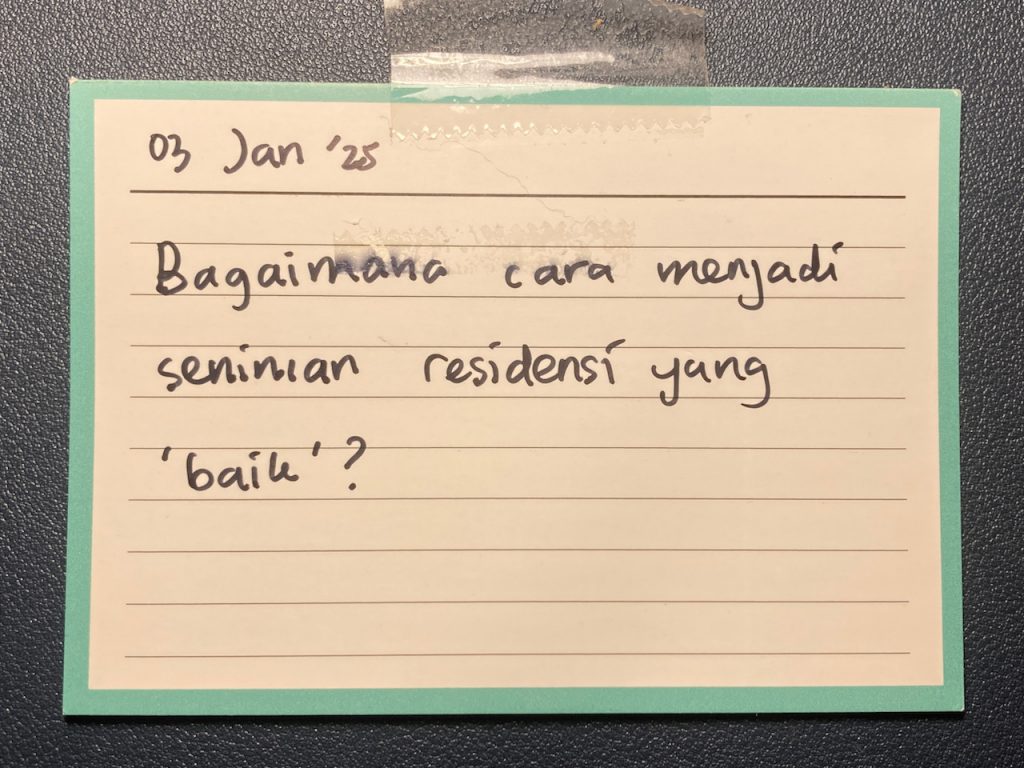 03 Jan '25
Bagaimana cara menjadi
seniman residensi yang
'baik'?